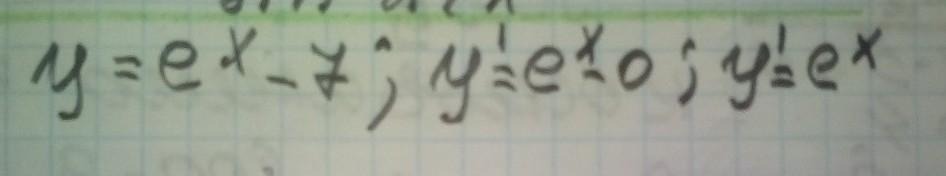 y = e^x - 7; y' = e^x - 0; y' = e^x